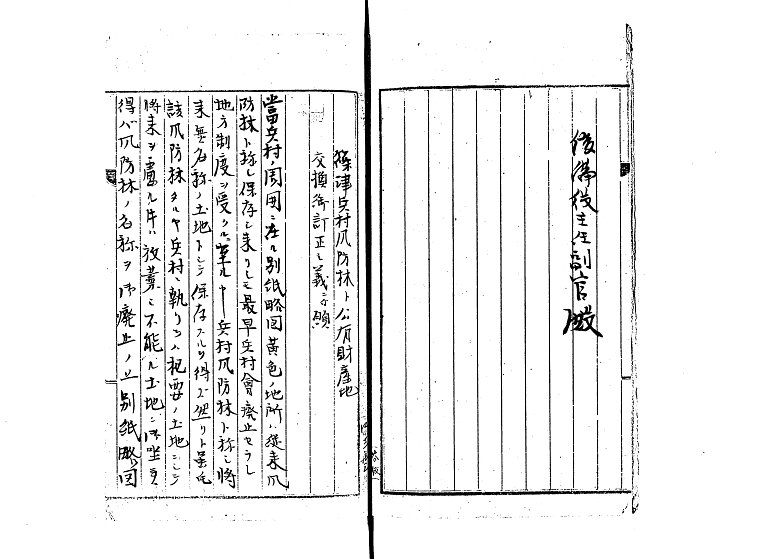 後備役主任副官殿
篠津兵村爪防林ト公有財産地
交換御訂正之義ニ付願
當兵村ノ周囲ニ在ル別紙略図黄色ノ地所ハ従来爪
防林ト称シ保存シ来リシモ最早兵村會廃止セラレ
地方制度ヲ受クルニ至ルヤ兵村爪防林ト称シ将
来無名称ノ土地トシテ保存スルヲ得ズ然リト雖モ
該爪防林タルヤ兵村ニ執リテハ枢要ノ土地ニシテ
将来ヲ慮ル時ハ放棄シ不能ル土地ニ御座候
得バ爪防林ノ名称ヲ御廃止ノ上別紙略図